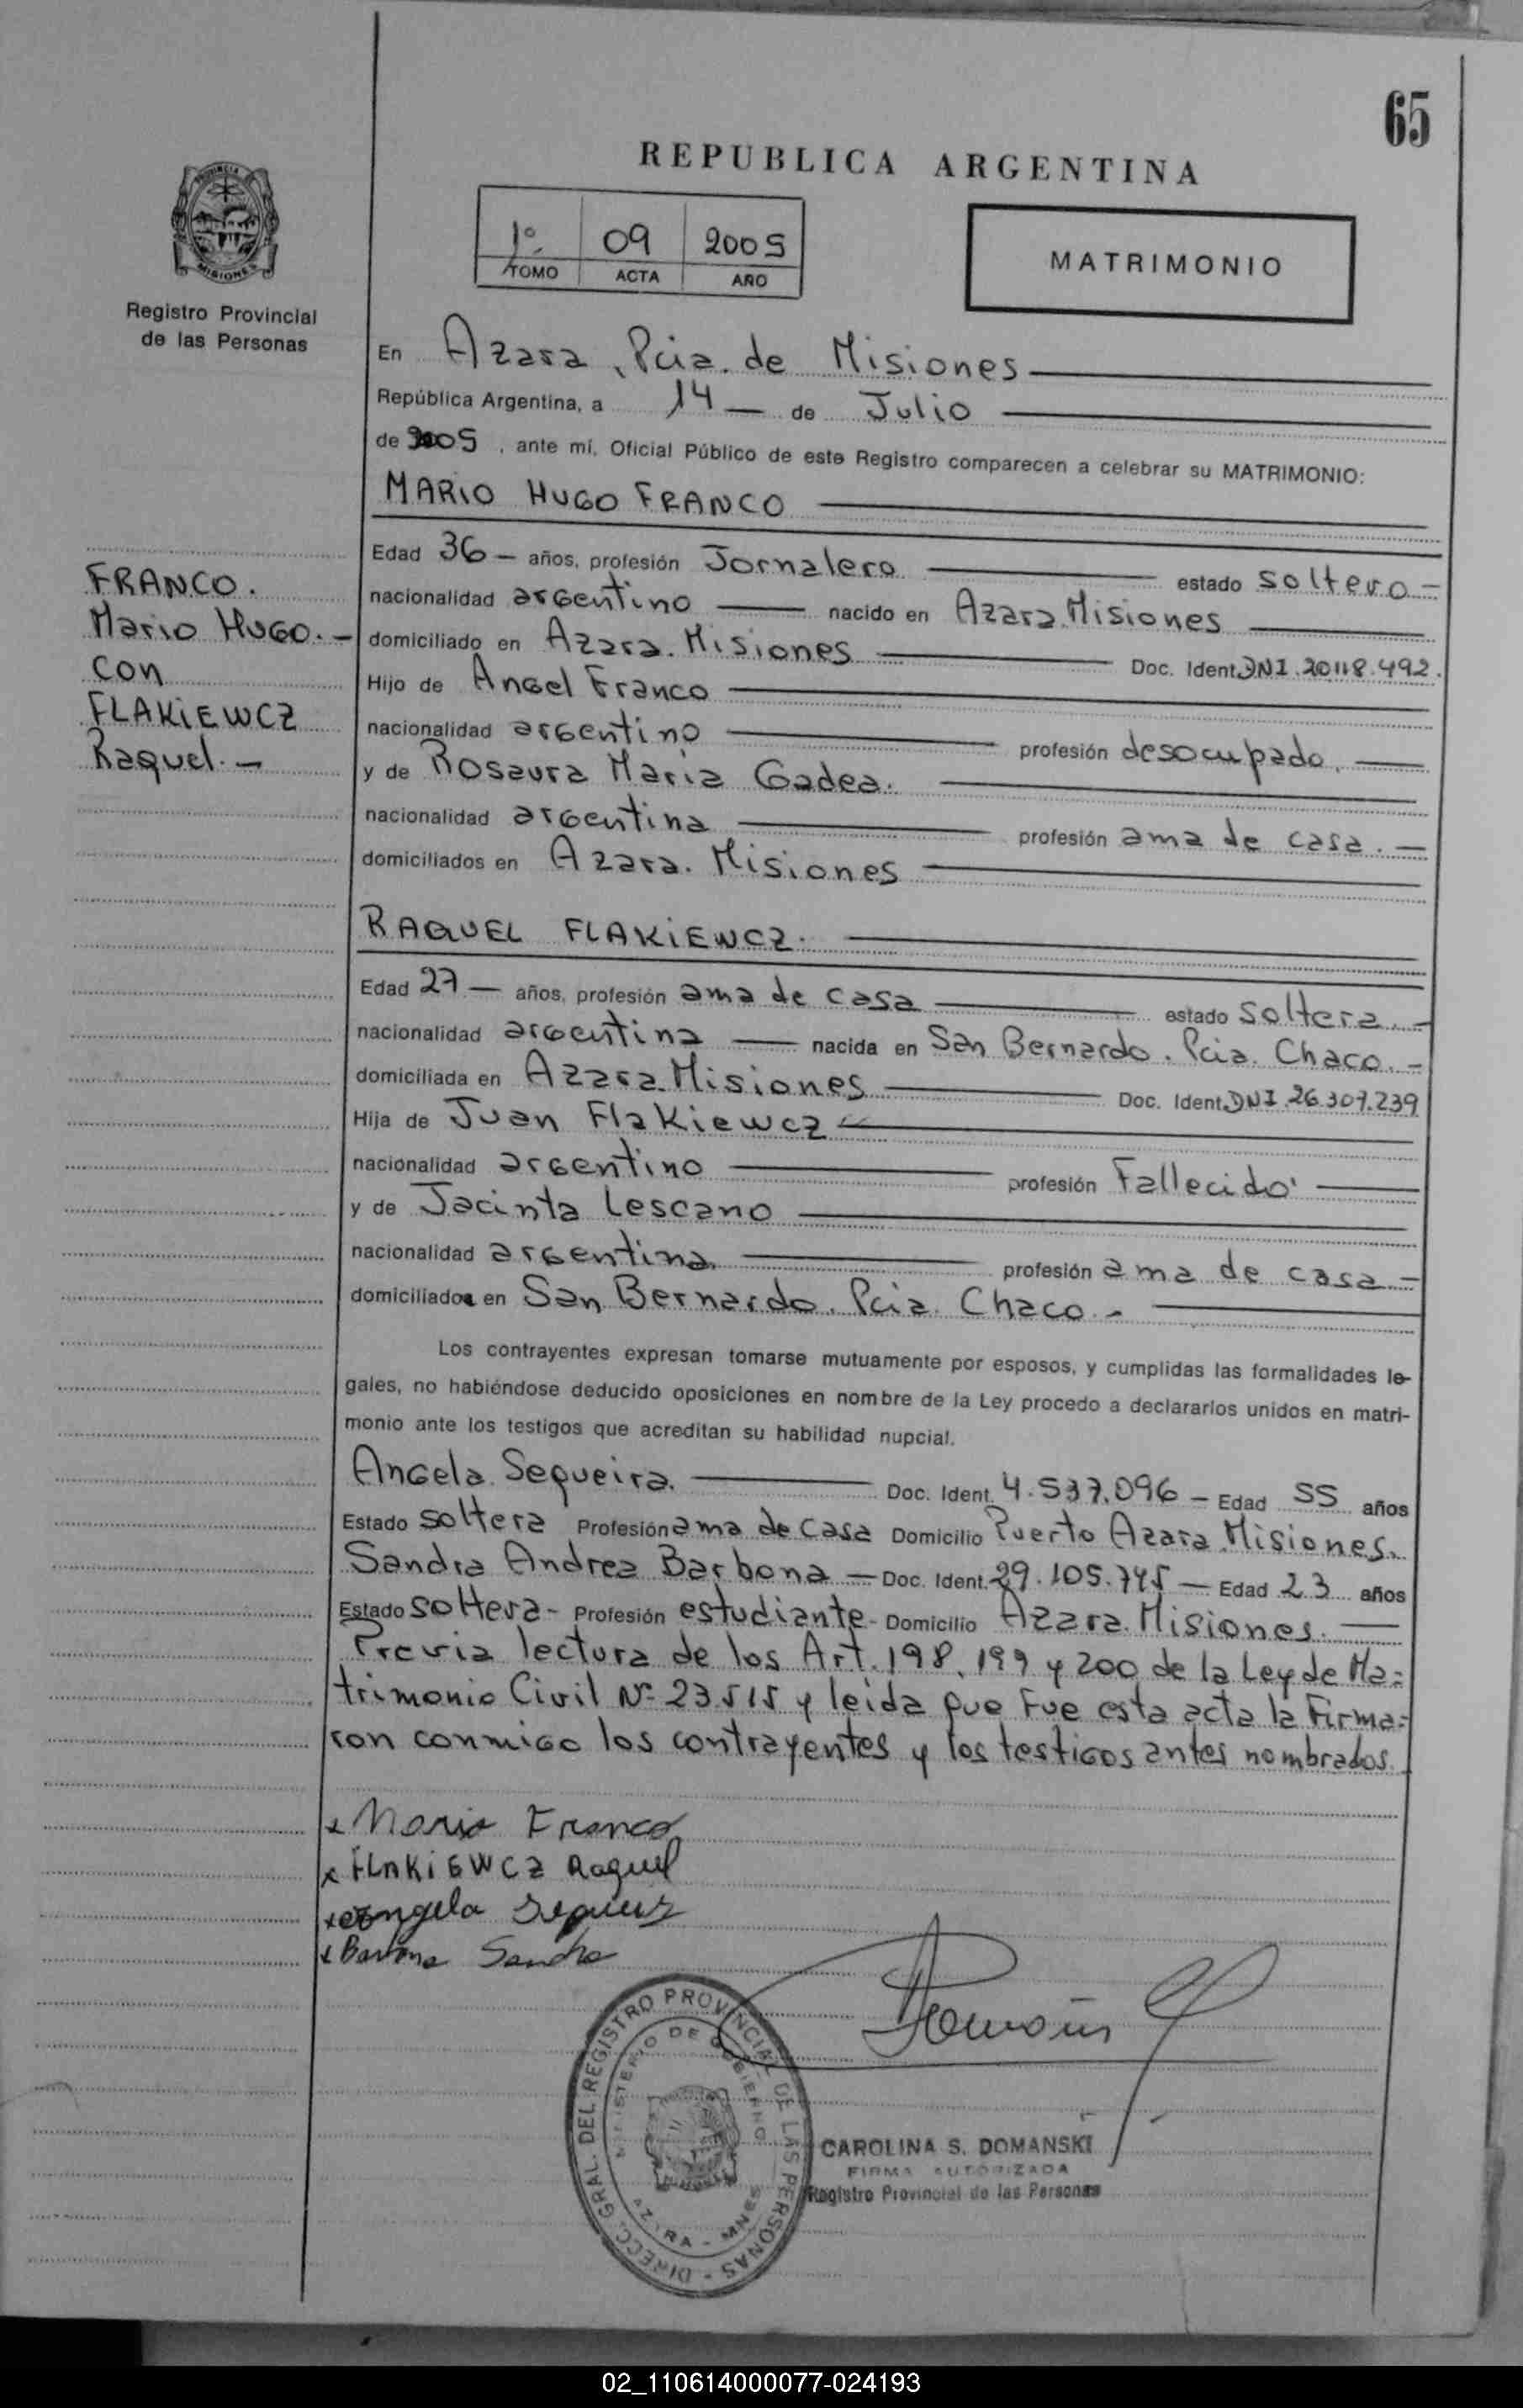 65
REPUBLICA ARGENTINA
1º 09 2005
TOMO ACTA AÑO
MATRIMONIO
Registro Provincial
de las Personas
En Azara, Pcia. de Misiones
República Argentina, a 14 — de Julio
de 2005, ante mí, Oficial Público de este Registro comparecen a celebrar su MATRIMONIO:
MARIO HUGO FRANCO
Edad 36 — años, profesión Jornalero estado soltero -
nacionalidad argentino nacido en Azara. Misiones
domiciliado en Azara. Misiones Doc. Ident. DNI. 20118.492.
Hijo de Angel Franco
nacionalidad argentino profesión desocupado.
y de Rosaura Maria Gadea.
nacionalidad argentina profesión ama de casa. -
domiciliados en Azara. Misiones
FRANCO.
Mario HUGO. -
con
FLAKIEWCZ
Raquel. -
RAQUEL FLAKIEWCZ.
Edad 27 — años, profesión ama de casa estado soltera. -
nacionalidad argentina nacida en San Bernardo. Pcia. Chaco. -
domiciliada en Azara. Misiones Doc. Ident. DNI. 26.307.239
Hija de Juan Flakiewcz
nacionalidad argentino profesión Fallecido
y de Jacinta Lescano
nacionalidad argentina profesión ama de casa -
domiciliada en San Bernardo. Pcia. Chaco. -
Los contrayentes expresan tomarse mutuamente por esposos, y cumplidas las formalidades le-
gales, no habiéndose deducido oposiciones en nombre de la Ley procedo a declararlos unidos en matri-
monio ante los testigos que acreditan su habilidad nupcial.
Angela Sequeira. Doc. Ident. 4.537.096 - Edad 55 años
Estado soltera Profesión ama de casa Domicilio Puerto Azara. Misiones.
Sandra Andrea Barbona — Doc. Ident. 29.105.745 — Edad 23 años
Estado soltera - Profesión estudiante - Domicilio Azara. Misiones.
Previa lectura de los Art. 198, 199 y 200 de la Ley de Ma=
trimonio Civil Nº 23.515 y leida que fue esta acta la firma=
ron conmigo los contrayentes y los testigos antes nombrados.
x Mario Franco
x FLAKIEWCZ Raquel
x Angela
x Sandra
DIRECC. GRAL. DEL REGISTRO PROVINCIAL DE LAS PERSONAS -
MINISTERIO DE GOBIERNO
CAROLINA S. DOMANSKI
FIRMA AUTORIZADA
Registro Provincial de las Personas
02_110614000077-024193